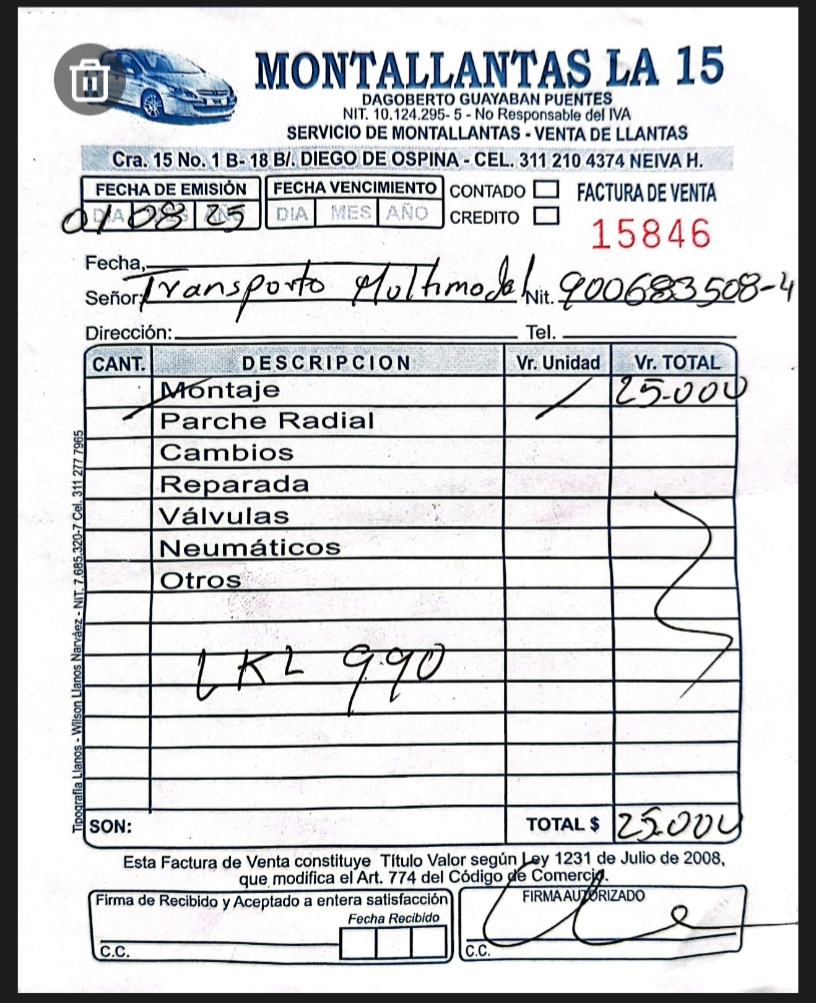 MONTALLANTAS LA 15
DAGOBERTO GUAYABAN PUENTES
NIT. 10.124.295- 5 - No Responsable del IVA
SERVICIO DE MONTALLANTAS - VENTA DE LLANTAS
Cra. 15 No. 1 B- 18 B/. DIEGO DE OSPINA - CEL. 311 210 4374 NEIVA H.
FECHA DE EMISIÓN FECHA VENCIMIENTO CONTADO FACTURA DE VENTA
DIA MES AÑO DIA MES AÑO CREDITO
01 08 25
15846
Fecha,
Señor: Transporto Multimodal Nit. 900683508-4
Dirección: Tel.
CANT. DESCRIPCION Vr. Unidad Vr. TOTAL
Montaje 25.000
Parche Radial
Cambios
Reparada
Válvulas
Neumáticos
Otros
LKL 990
SON: TOTAL $ 25.000
Esta Factura de Venta constituye Titulo Valor según Ley 1231 de Julio de 2008,
que modifica el Art. 774 del Código de Comercio.
Firma de Recibido y Aceptado a entera satisfacción FIRMA AUTORIZADO
Fecha Recibido
C.C. C.C.
Tipografía Llanos - Wilson Llanos Narváez - NIT. 7.685.320-7 Cel. 311 277 7965